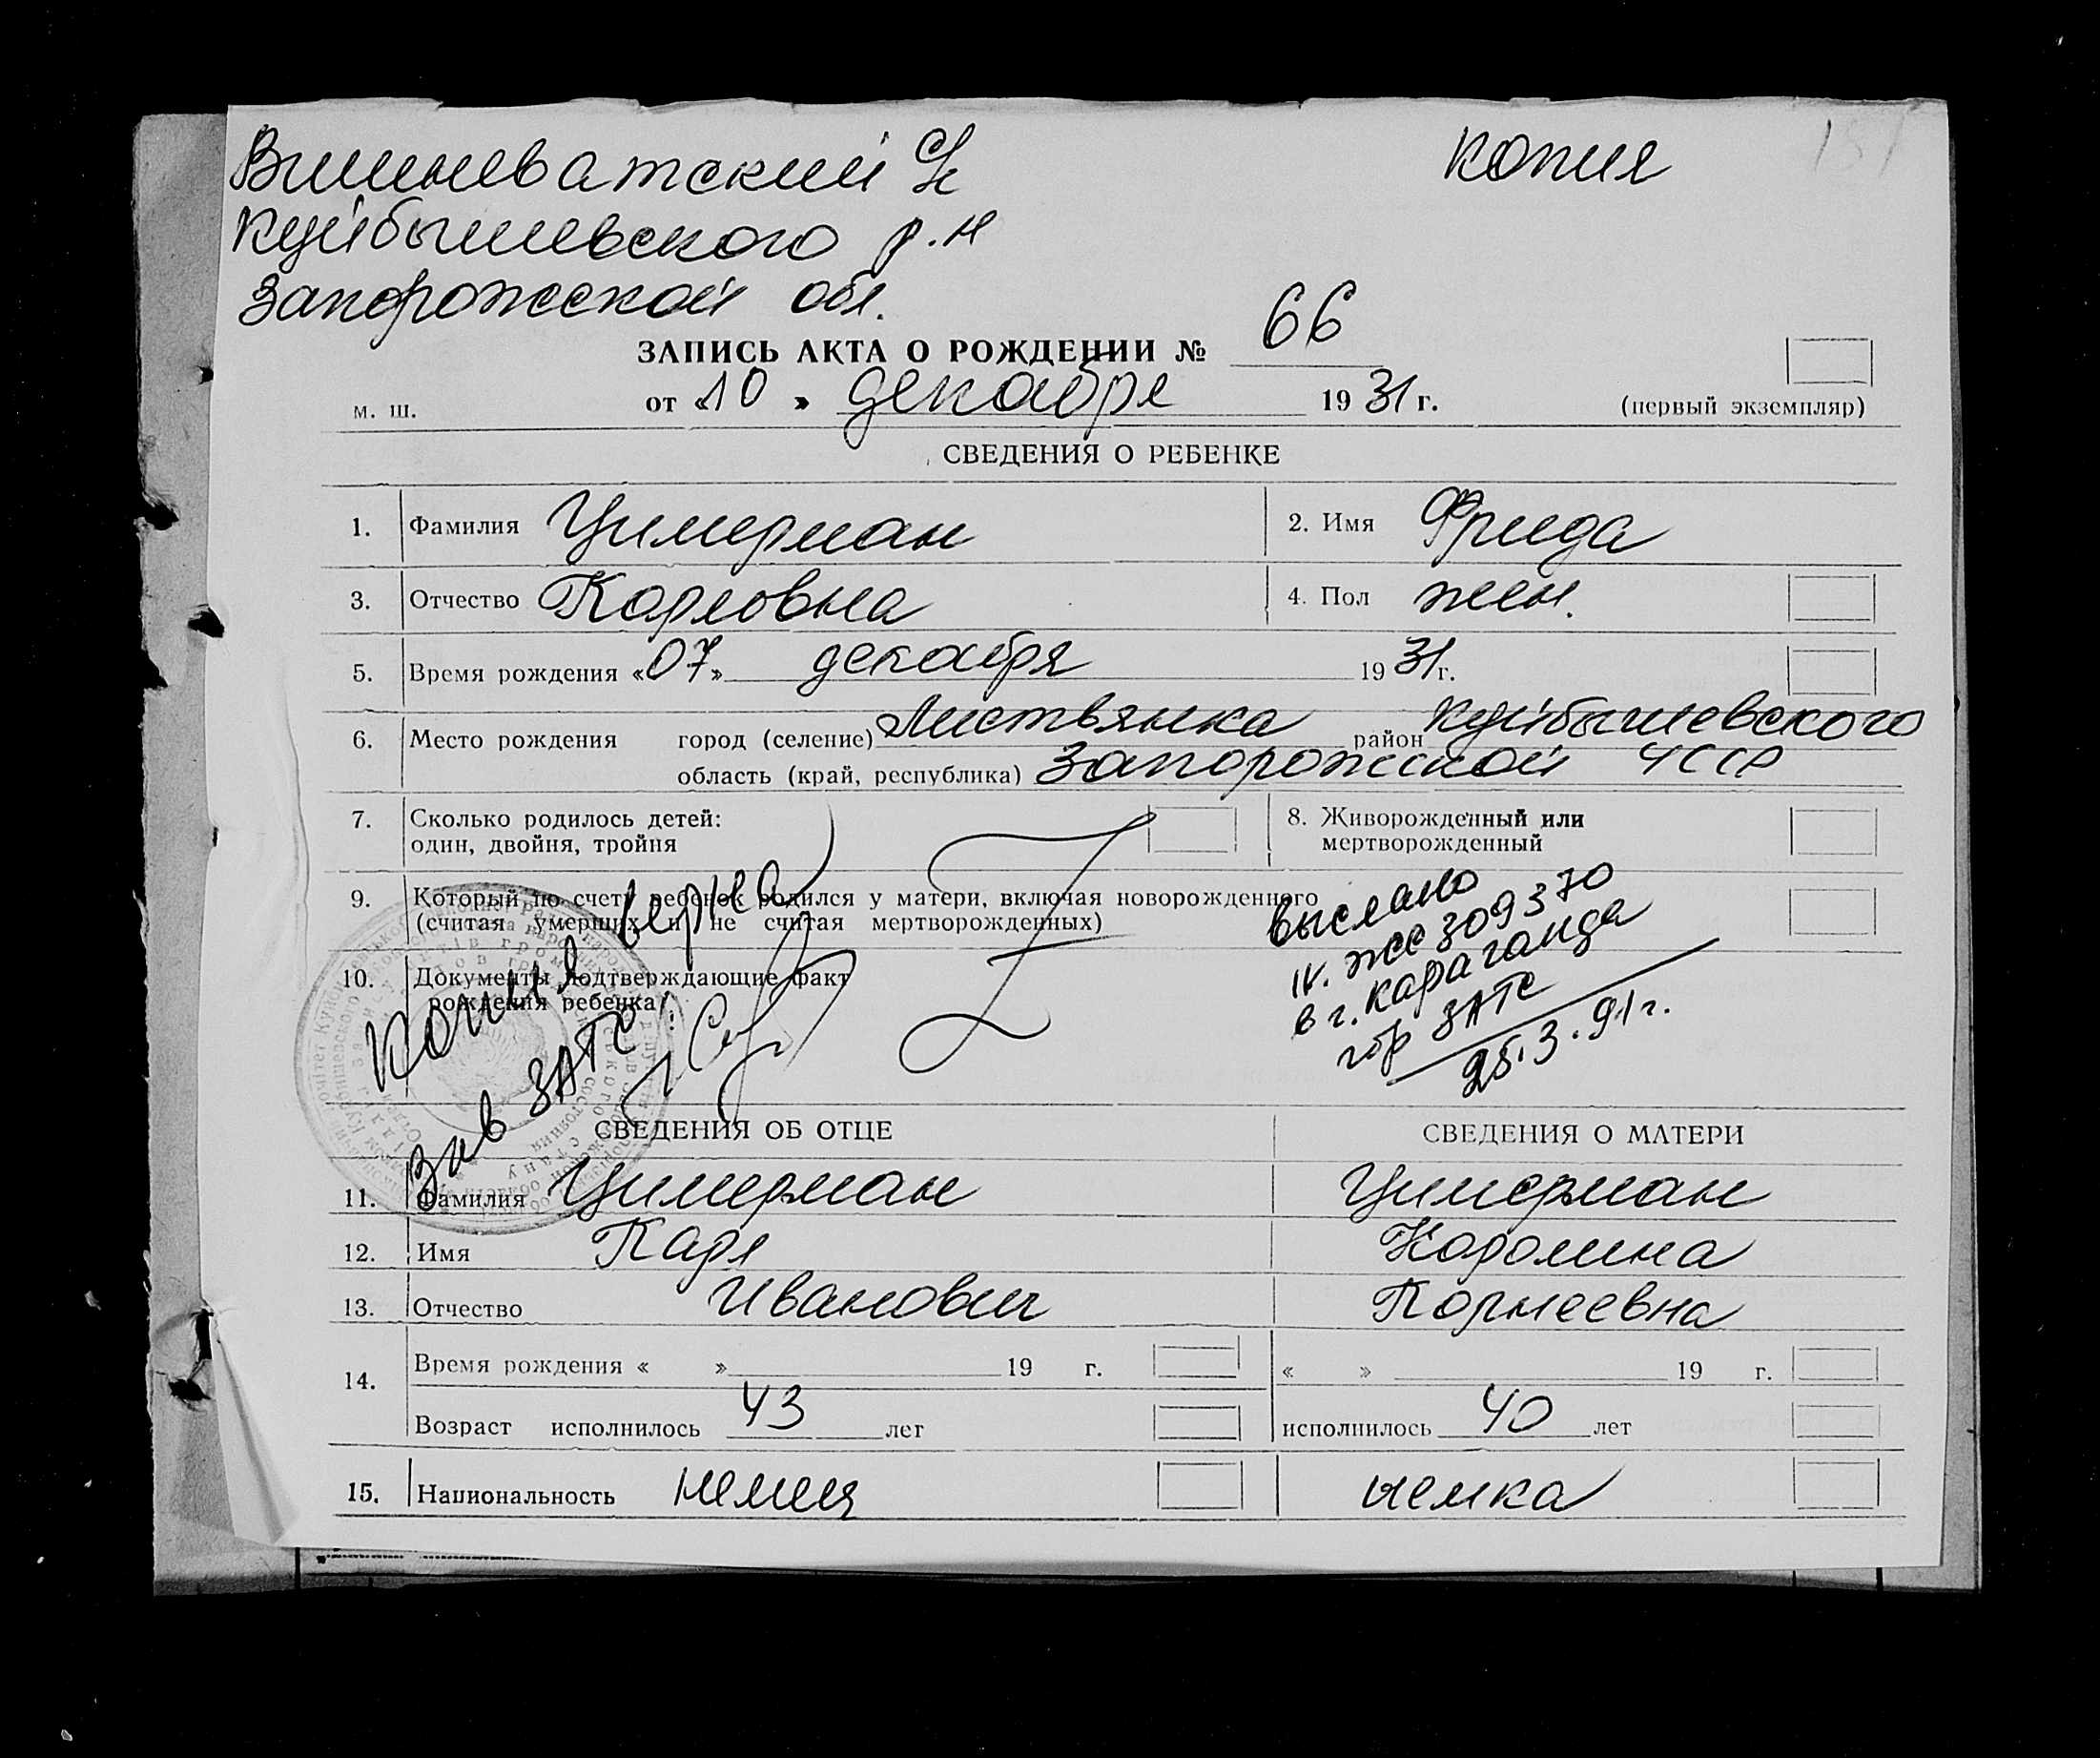 Вишневатский с/с
копия
Куйбышевского р.н
Запорожской обл.
ЗАПИСЬ АКТА О РОЖДЕНИИ № 66
м. ш. от «10» декабря 1931 г. (первый экземпляр)
СВЕДЕНИЯ О РЕБЕНКЕ
1. Фамилия Цимерман 2. Имя Фрида
3. Отчество Карловна 4. Пол жен.
5. Время рождения «07» декабря 1931 г.
6. Место рождения город (селение) Листвянка район Куйбышевского
область (край, республика) Запорожской УССР
7. Сколько родилось детей: 8. Живорожденный или
один, двойня, тройня мертворожденный
9. Который по счету ребенок родился у матери, включая новорожденного
(считая умерших и не считая мертворожденных)
10. Документы, подтверждающие факт
рождения ребенка
Копия верна
Зав ЗАГС
выслано
IV. жс 309370
в г. Караганда
гор ЗАГС
25.3.91 г.
СВЕДЕНИЯ ОБ ОТЦЕ СВЕДЕНИЯ О МАТЕРИ
11. Фамилия Цимерман Цимерман
12. Имя Карл Каролина
13. Отчество Иванович Корнеевна
14. Время рождения « » 19 г. « » 19 г.
Возраст исполнилось 43 лет исполнилось 40 лет
15. Национальность немец немка